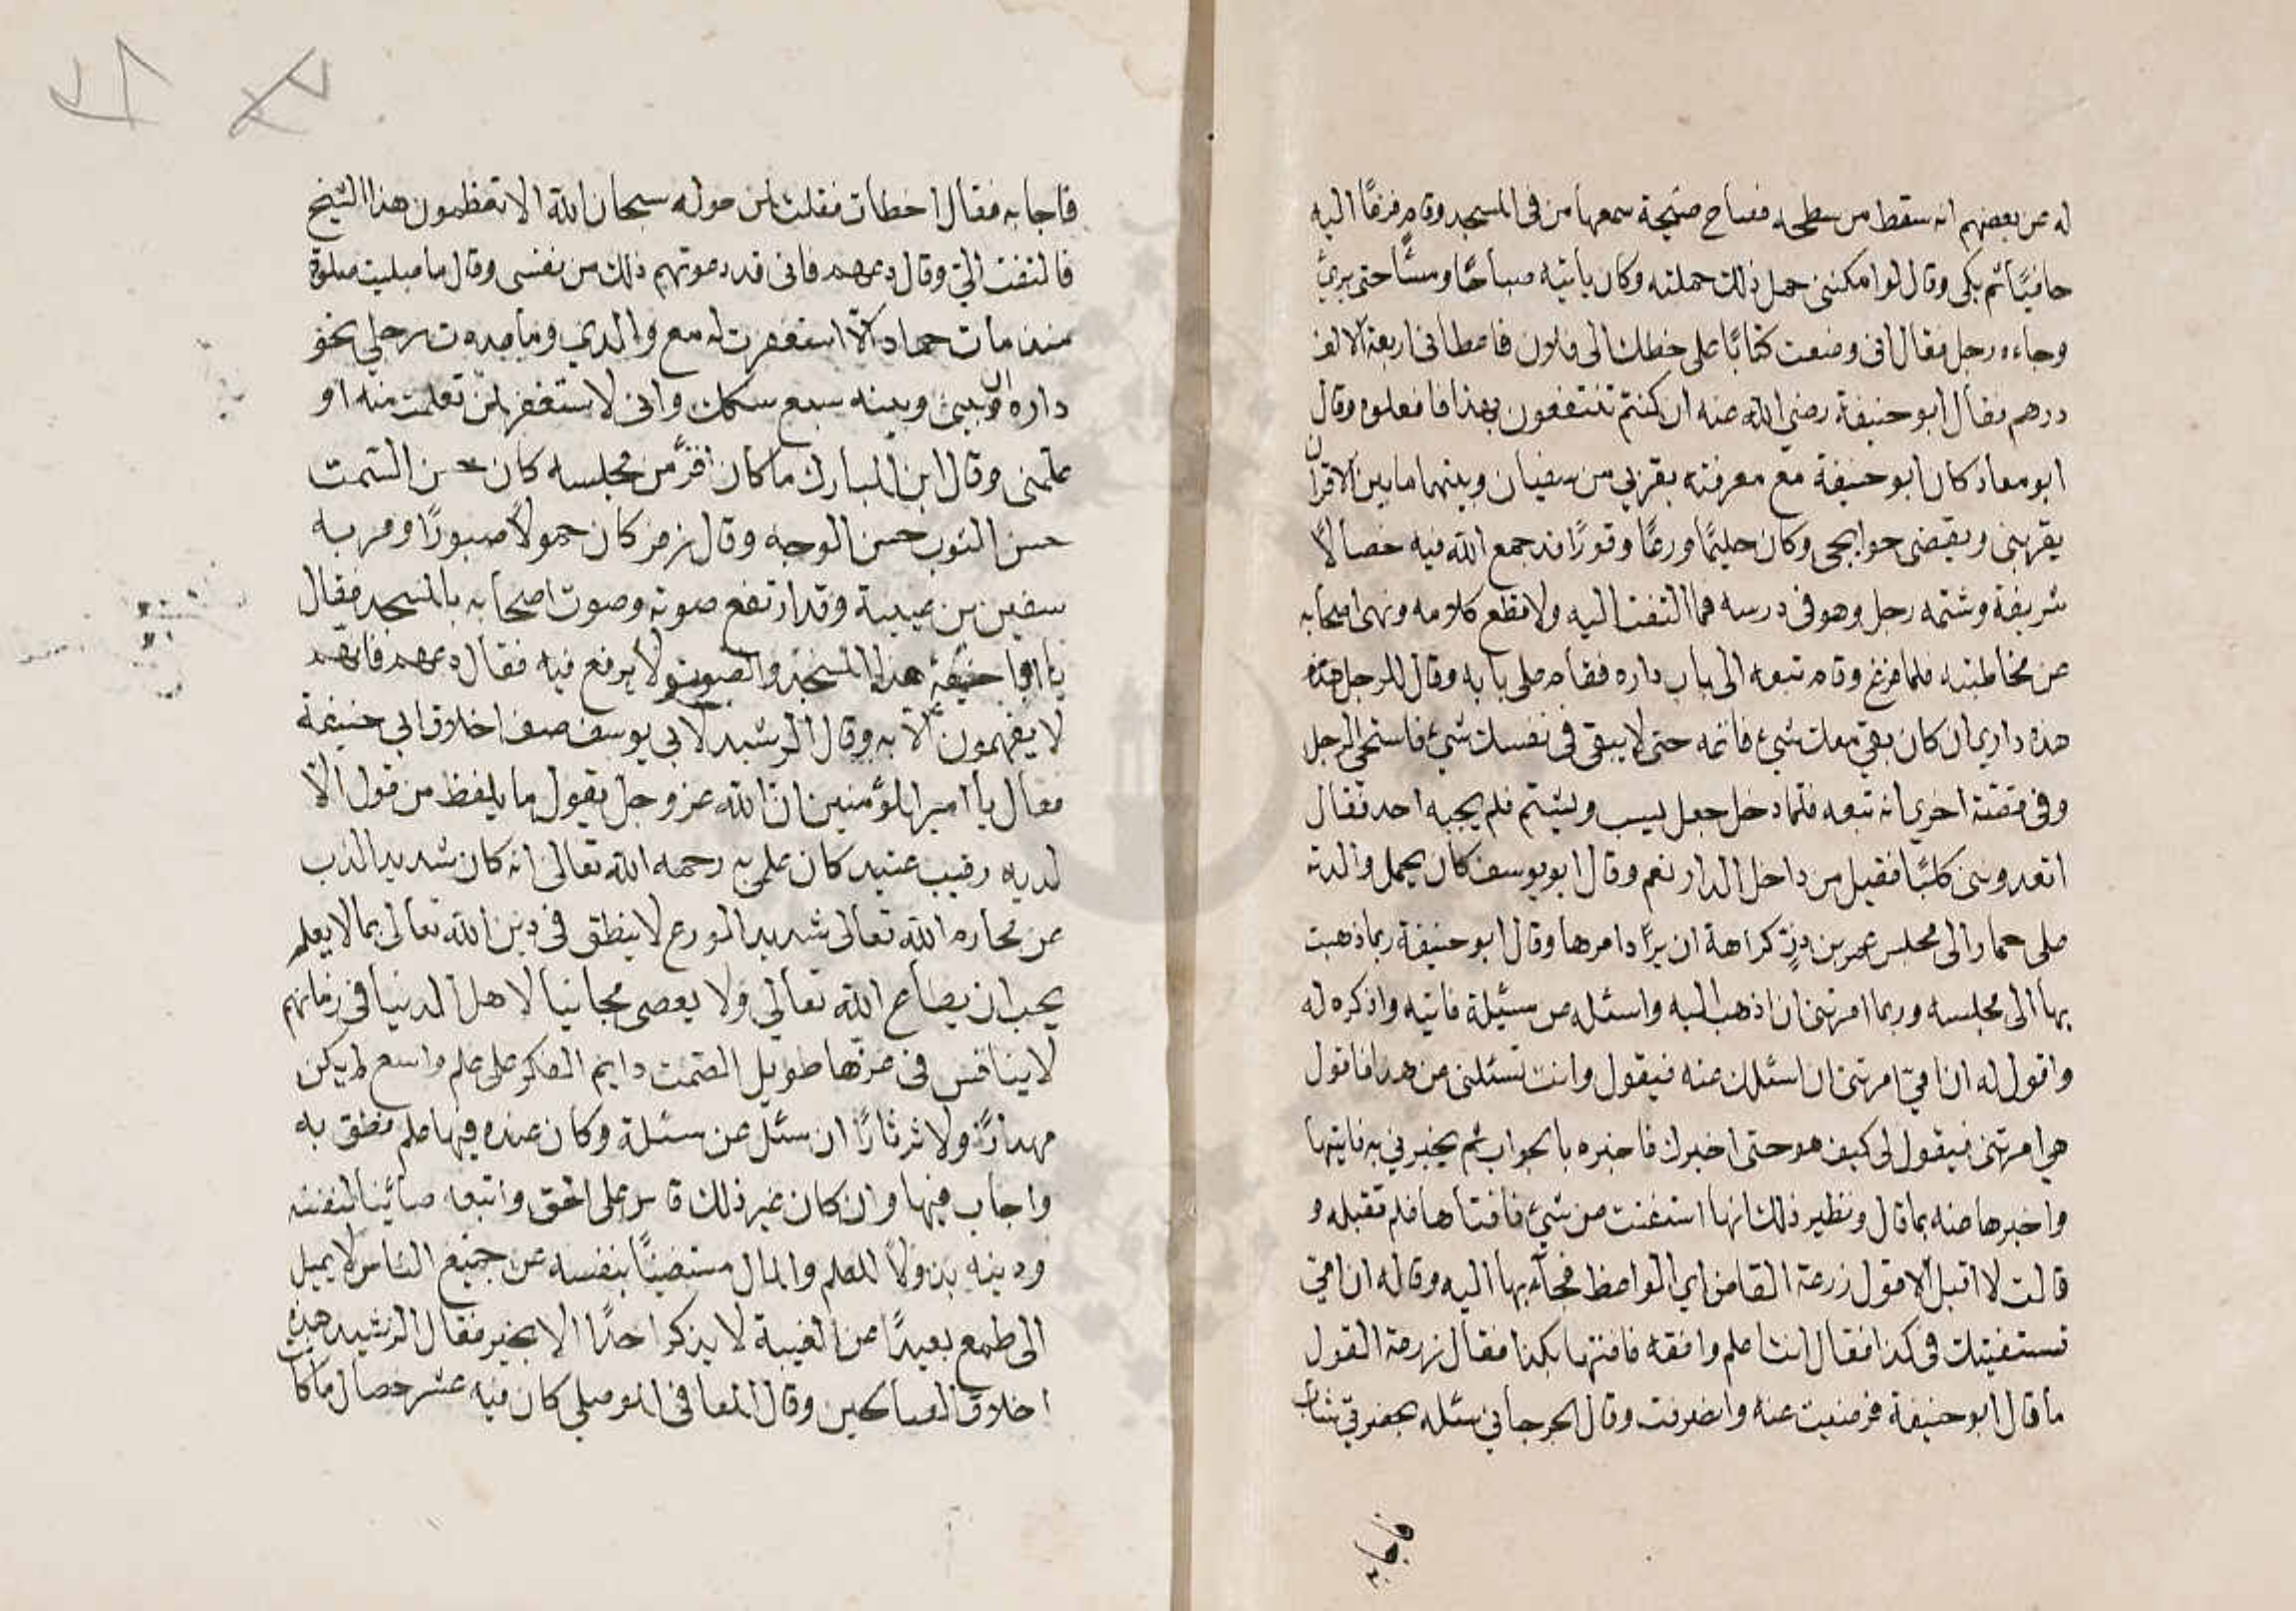 له عن بعضهم انه سقط من سطحه فصاح صيحة سمعها من فى المسجد وقام فزعًا اليه
حافيًا ثم بكى وقال لو امكننى حمل ذلك حملته وكان ياتيه صباحًا ومساً حتى برئ
وجاءه رجل فقال انى وضعت كتابًا على خطك الى فلان فاعطانى اربعة الاف
درهم فقال ابو حنيفة رضى الله عنه ان كنتم تنتفعون بهذا فافعلوه وقال
ابو معاذ كان ابو حنيفة مع معرفته بقربي من سفيان وبينهما ما بين الاقران
يقربنى ويقضى حوايجى وكان حليمًا ورعًا وقورًا قد جمع الله فيه خصالاً
شريفة وشتمه رجل وهو فى درسه فما التفت اليه ولا قطع كلامه ونهى اصحابه
عن مخاطبته فلما فرغ وقام تبعه الى باب داره فقام على بابه وقال للرجل هذه
هذه داري ان كان بقي معك شئ فاتمه حتى لا يبقى فى نفسك شئ فاستحى الرجل
وفى قصة اخرى انه تبعه فلما دخل جعل يسب ويشتم فلم يجبه احد فقال
اتعدوننى كلبًا فقيل من داخل الدار نعم وقال ابو يوسف كان يحمل والدته
على حمار الى مجلس عمر بن ذر كراهة ان يرد امرها وقال ابو حنيفة ربما ذهبت
بها الى مجلسه وربما امرتنى ان اذهب اليه واسئله عن مسئلة فاتيه واذكره له
واقول له ان امي امرتنى ان اسئلك عنه فيقول وانت تسئلنى عن هذا فاقول
هي امرتنى فيقول لى كيف هو حتى اخبرك فاخبره بالجواب ثم يخبرني به فايتها
واخبرها عنه بما قال ونظير ذلك انها استفتت عن شئ فافتاها فلم تقبله و
قالت لا اقبل الا قول زرعة القاص اي الواعظ فجآء بها اليه وقال له ان امي
تستفتيك فى كذا فقال انت اعلم وافقه فافتها بكذا فقال زرعة القول
ما قال ابو حنيفة فرضيت عنه وانصرفت وقال الجرجاني سئله بحضرتي شاب
فاجابه
فاجابه فقال اخطات فقلت لمن حوله سبحان الله الا تعظمون هذا الشيخ
فالتفت الي وقال دعهم فانى قد دعوتهم ذلك من نفسى وقال ما صليت صلوة
منذ مات حماد الّا استغفرت له مع والدي وما مددت رجلي نحو
داره وبينى وبينه سبع سكك وانى لاستغفر لمن تعلمت منه او
علمنى وقال ابن المبارك ما كان اوقر من مجلسه كان حسن السمت
حسن الثوب حسن الوجه وقال زفر كان حمولاً صبورًا ومر به
سفين بن عيينة وقد ارتفع صوته وصوت اصحابه بالمسجد فقال
يا ابا حنيفة هذا المسجد والصوت لا يرفع فيه فقال دعهم فانهم
لا يفهمون الّا به وقال الرشيد لابي يوسف صف اخلاق ابى حنيفة
فقال يا امير المؤمنين ان الله عز وجل يقول ما يلفظ من قول الّا
لديه رقيب عتيد كان علمى به رحمه الله تعالى انه كان شديد الذب
عن محارم الله تعالى شديد الورع لا ينطق فى دين الله تعالى بما لا يعلم
يحب ان يطاع الله تعالى ولا يعصى مجانبا لاهل الدنيا فى زمانهم
لا ينافس فى عزها طويل الصمت دايم الفكر على علم واسع لم يكن
مهذارًا ولا ثرثارًا ان سئل عن مسئلة وكان عنده فيها علم نطق به
واجاب فيها وان كان غير ذلك قاس على الحق واتبعه صائنا لنفسه
ودينه بذولاً للعلم والمال مستغنيًا بنفسه عن جميع الناس لا يميل
الى طمع بعيدًا عن الغيبة لا يذكر احدًا الا بخير فقال الرشيد هذه
اخلاق الصالحين وقال المعافى الموصلي كان فيه عشر خصال ما كا